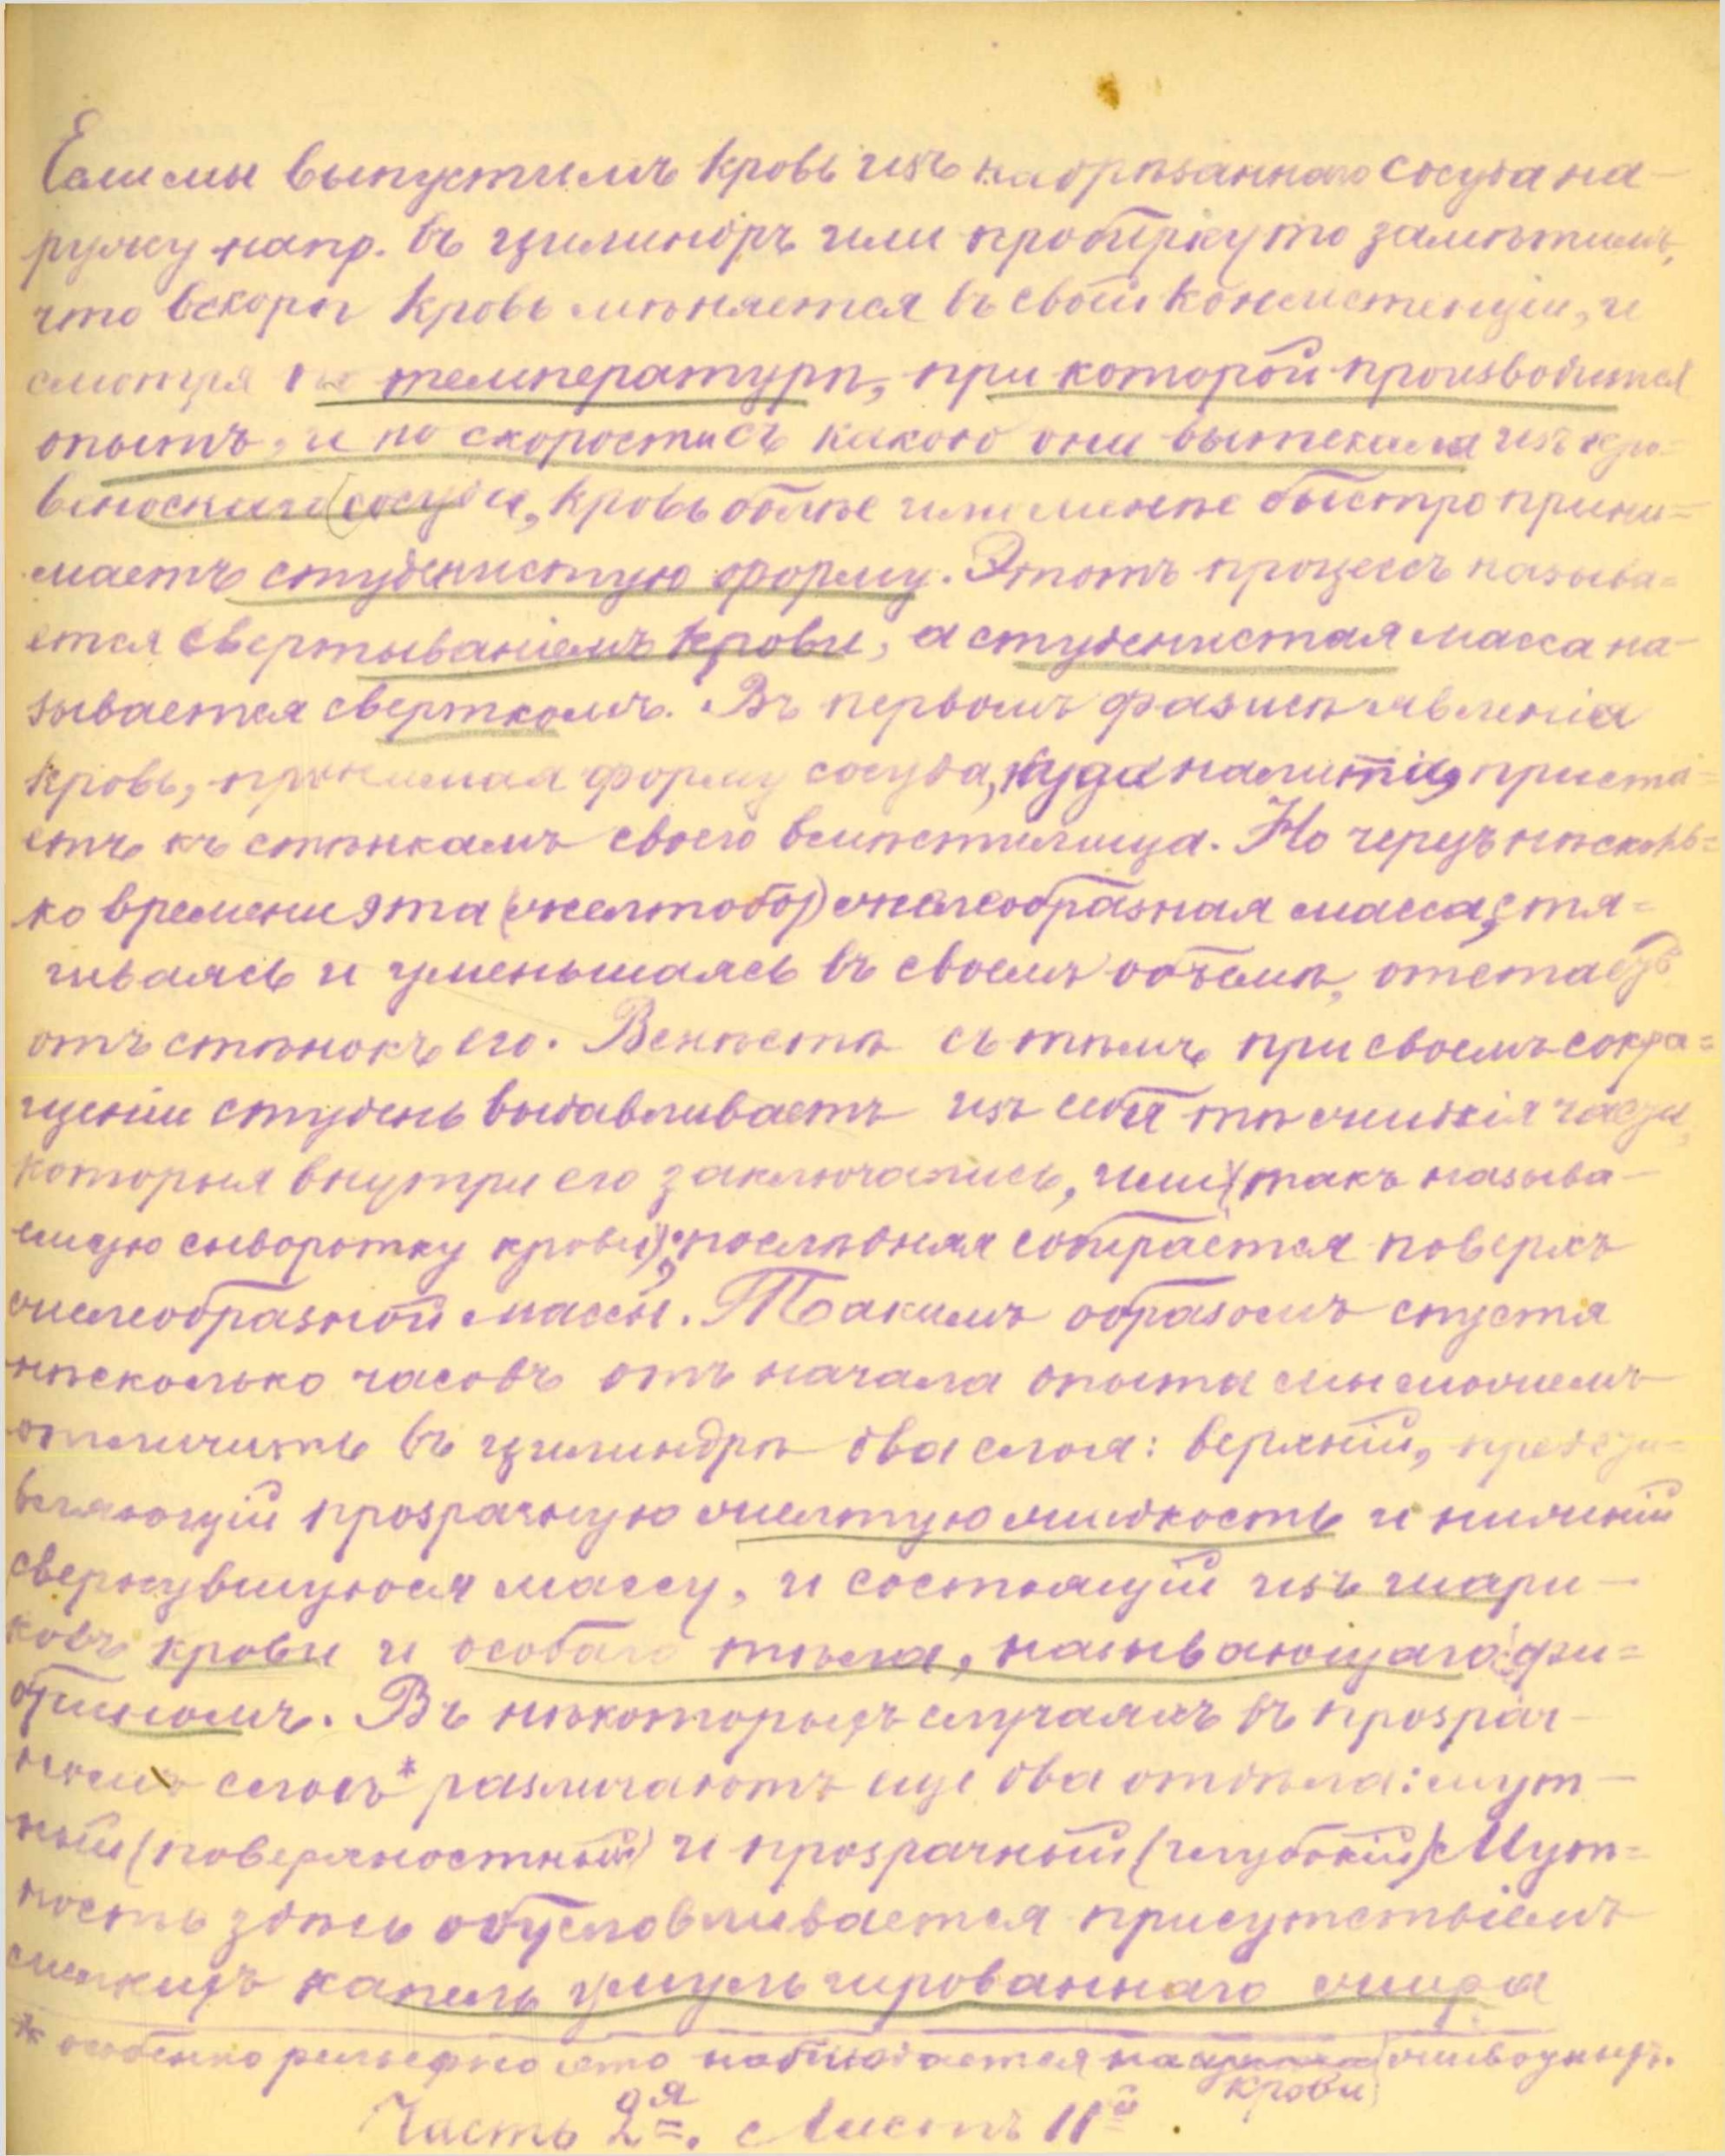 Если мы выпустимъ кровь изъ надрѣзаннаго сосуда на-
ружу напр. въ цилиндръ или пробирку то замѣтимъ,
что вскорѣ кровь мѣняется въ своей консистенціи, и
смотря по температурѣ, при которой производится
опытъ, и по скорости съ какою она вытекала изъ кро-
веноснаго (сосуда, кровь болѣе или менѣе быстро прини=
маетъ студенистую форму. Этотъ процессъ называ=
ется свертываніемъ крови, а студенистая масса на-
зывается сверткомъ. Въ первомъ фазисѣ явленія
кровь, принимая форму сосуда, куда налита, приста=
етъ къ стѣнкамъ своего вмѣстилища. Но черезъ нѣсколь=
ко времени эта (желтобо) желеобразная масса, стя=
гиваясь и уменьшаясь въ своемъ объемѣ, отстаетъ
отъ стѣнокъ его. Вмѣстѣ съ тѣмъ при своемъ сокра=
щеніи студень выдавливаетъ изъ себя тѣ жидкія части,
которыя внутри его заключались, или (такъ называ-
емую сыворотку крови); послѣдняя собирается поверхъ
желеобразной массы. Такимъ образомъ спустя
нѣсколько часовъ отъ начала опыта мы можемъ
отличить въ цилиндрѣ два слоя: верхній, предста=
вляющій прозрачную желтую жидкость и нижній
свернувшуюся массу, и состоящій изъ шари-
ковъ крови и особаго тѣла, называющаго фи=
бриномъ. Въ нѣкоторыхъ случаяхъ въ прозрач-
номъ слоѣ* различаютъ еще два отдѣла: мут-
ный (поверхностный) и прозрачный (глубокій). Мут=
ность здѣсь обусловливается присутствіемъ
мелкихъ капель эмульгированнаго жира
* особенно рельефно это наблюдается на крови животныхъ.
Часть 2ая. Листъ 11й.